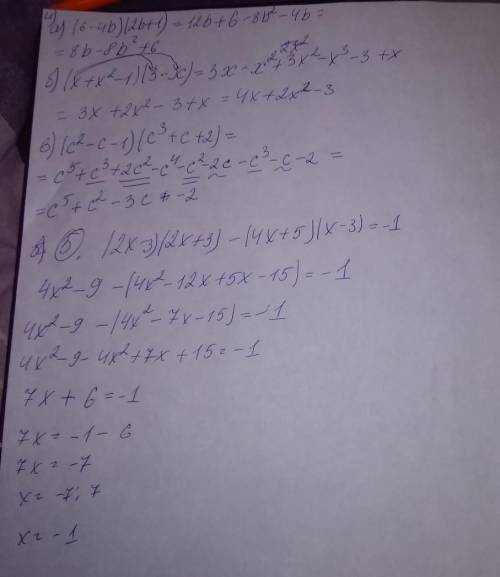 а) (6-4b)(2b+1) = 12b+6-8b²-4b=
= 8b-8b²+6
б) (x+x²-1)(3-x)=3x-x²+3x²-x³-3+x
2x²
= 3x+2x²-3+x = 4x+2x²-3
в) (c²-c-1)(c³+c+2)=
= c⁵+c³+2c²-c⁴-c²-2c-c³-c-2 =
=c⁵+c²-3c-2
5. (2x-3)(2x+3)-(4x+5)(x-3)=-1
4x²-9-(4x²-12x+5x-15)=-1
4x²-9-(4x²-7x-15)=-1
4x²-9-4x²+7x+15=-1
7x+6=-1
7x=-1-6
7x=-7
x=-7:7
x=-1